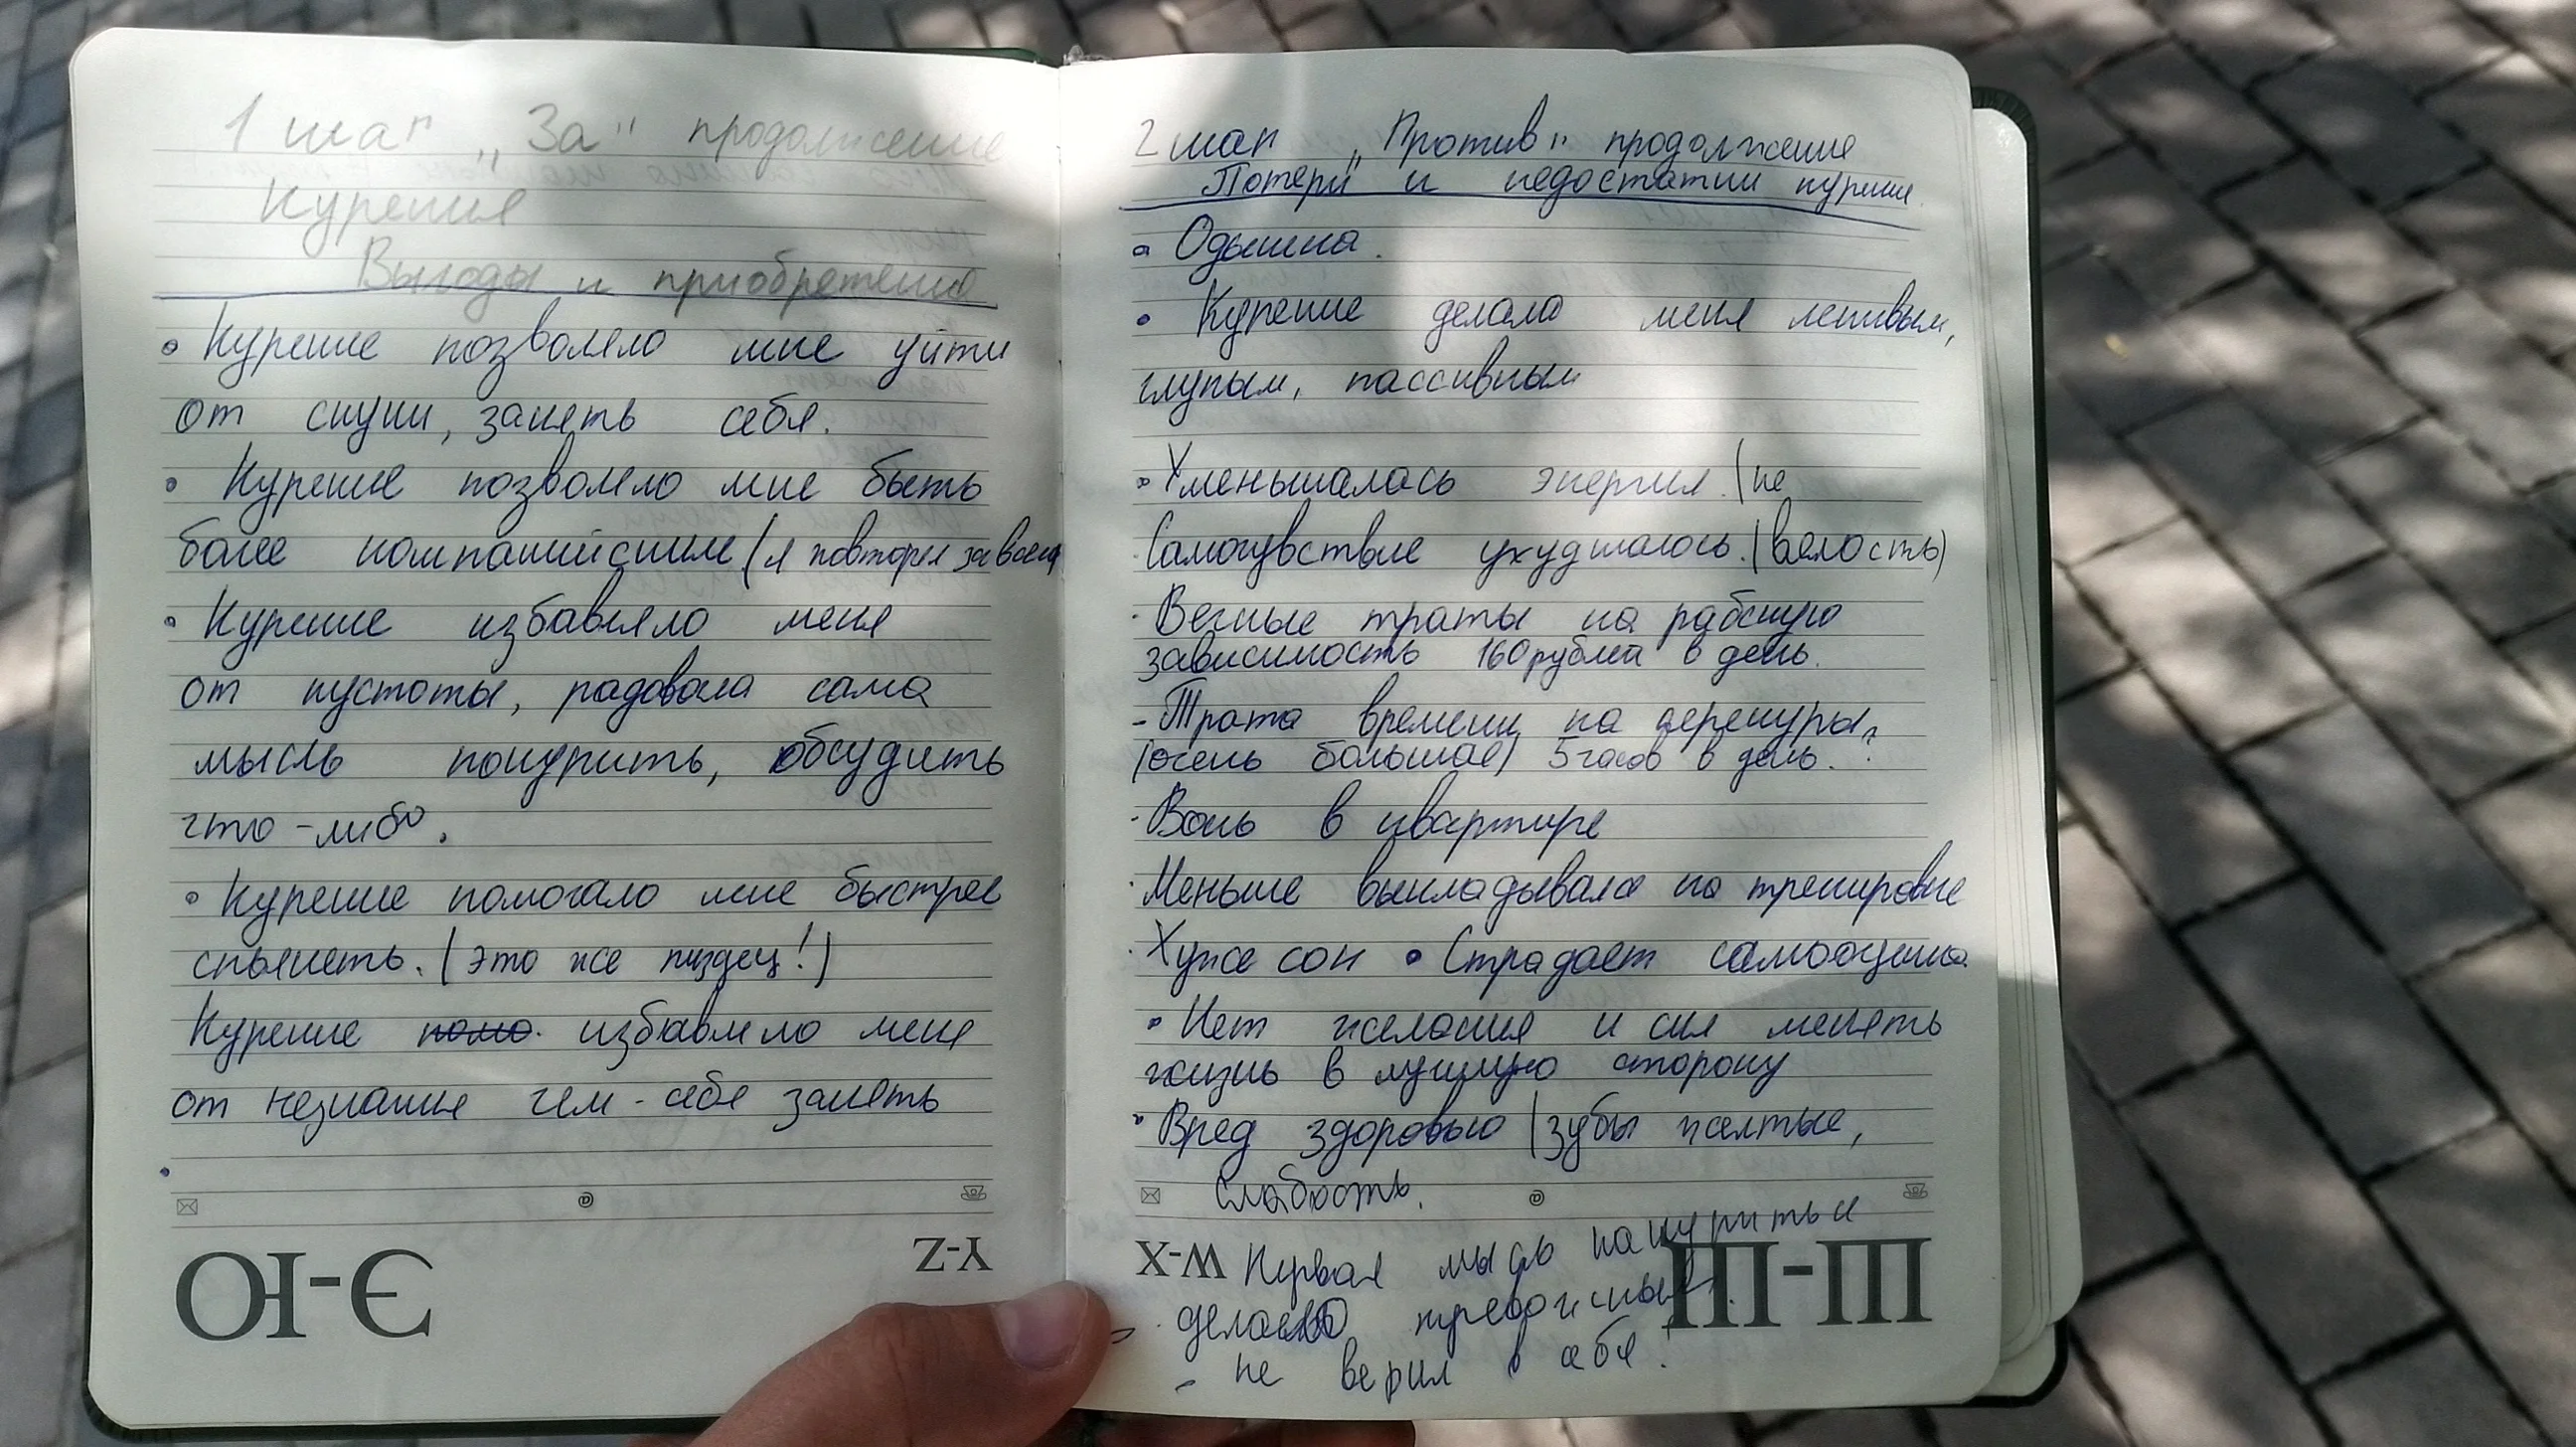 1 шаг „За" продолжение
Курения
Выгоды и приобретения
• Курение позволяло мне уйти
от скуки, занять себя.
• Курение позволяло мне быть
более компанийским (я повторял за всеми
• Курение избавляло меня
от пустоты, радовала сама
мысль покурить, обсудить
что-либо.
• Курение помогало мне быстрее
спьянеть. (это же пиздец!)
Курение помо. избавляло меня
от незнания чем-себя занять
•
Ю-Э
Y-Z
2 шаг „Против" продолжение
Потери и недостатки курения
• Одышка.
• Курение делала меня ленивым,
глупым, пассивным
• Уменьшалась энергия. (не
Самочувствие ухудшалось. (вялость)
• Вечные траты на рабскую
зависимость 160 рублей в день.
- Трата времени на перекуры,
(очень большая) 5 часов в день.
- Вонь в квартире
• Меньше выкладывался на тренировке
• Хуже сон • Страдает самооценка
• Нет желания и сил менять
жизнь в лучшую сторону
• Вред здоровью (зубы желтые,
слабость.
X-W Первая мысль накуриться
Ш-Щ
делало тревожным.
- не верил в себя!